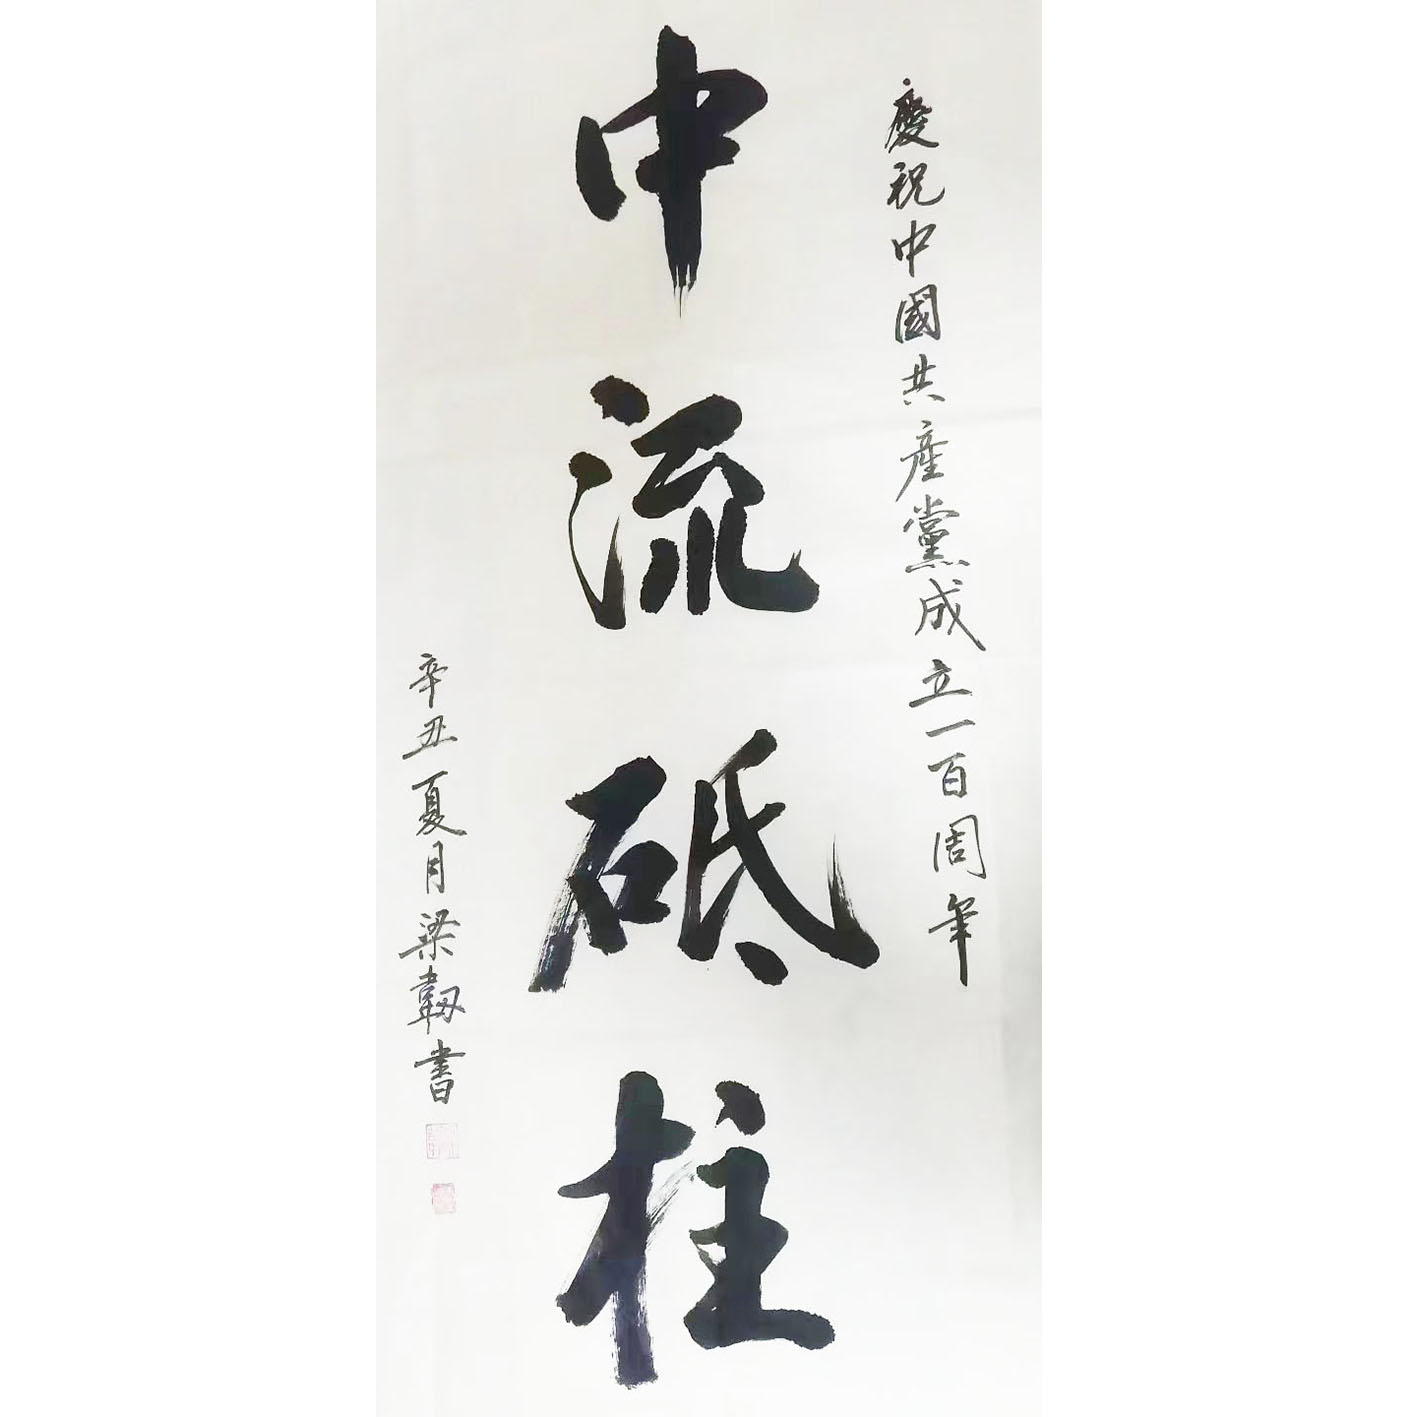 慶祝中國共産黨成立一百周年
中流砥柱
辛丑夏月梁韌書